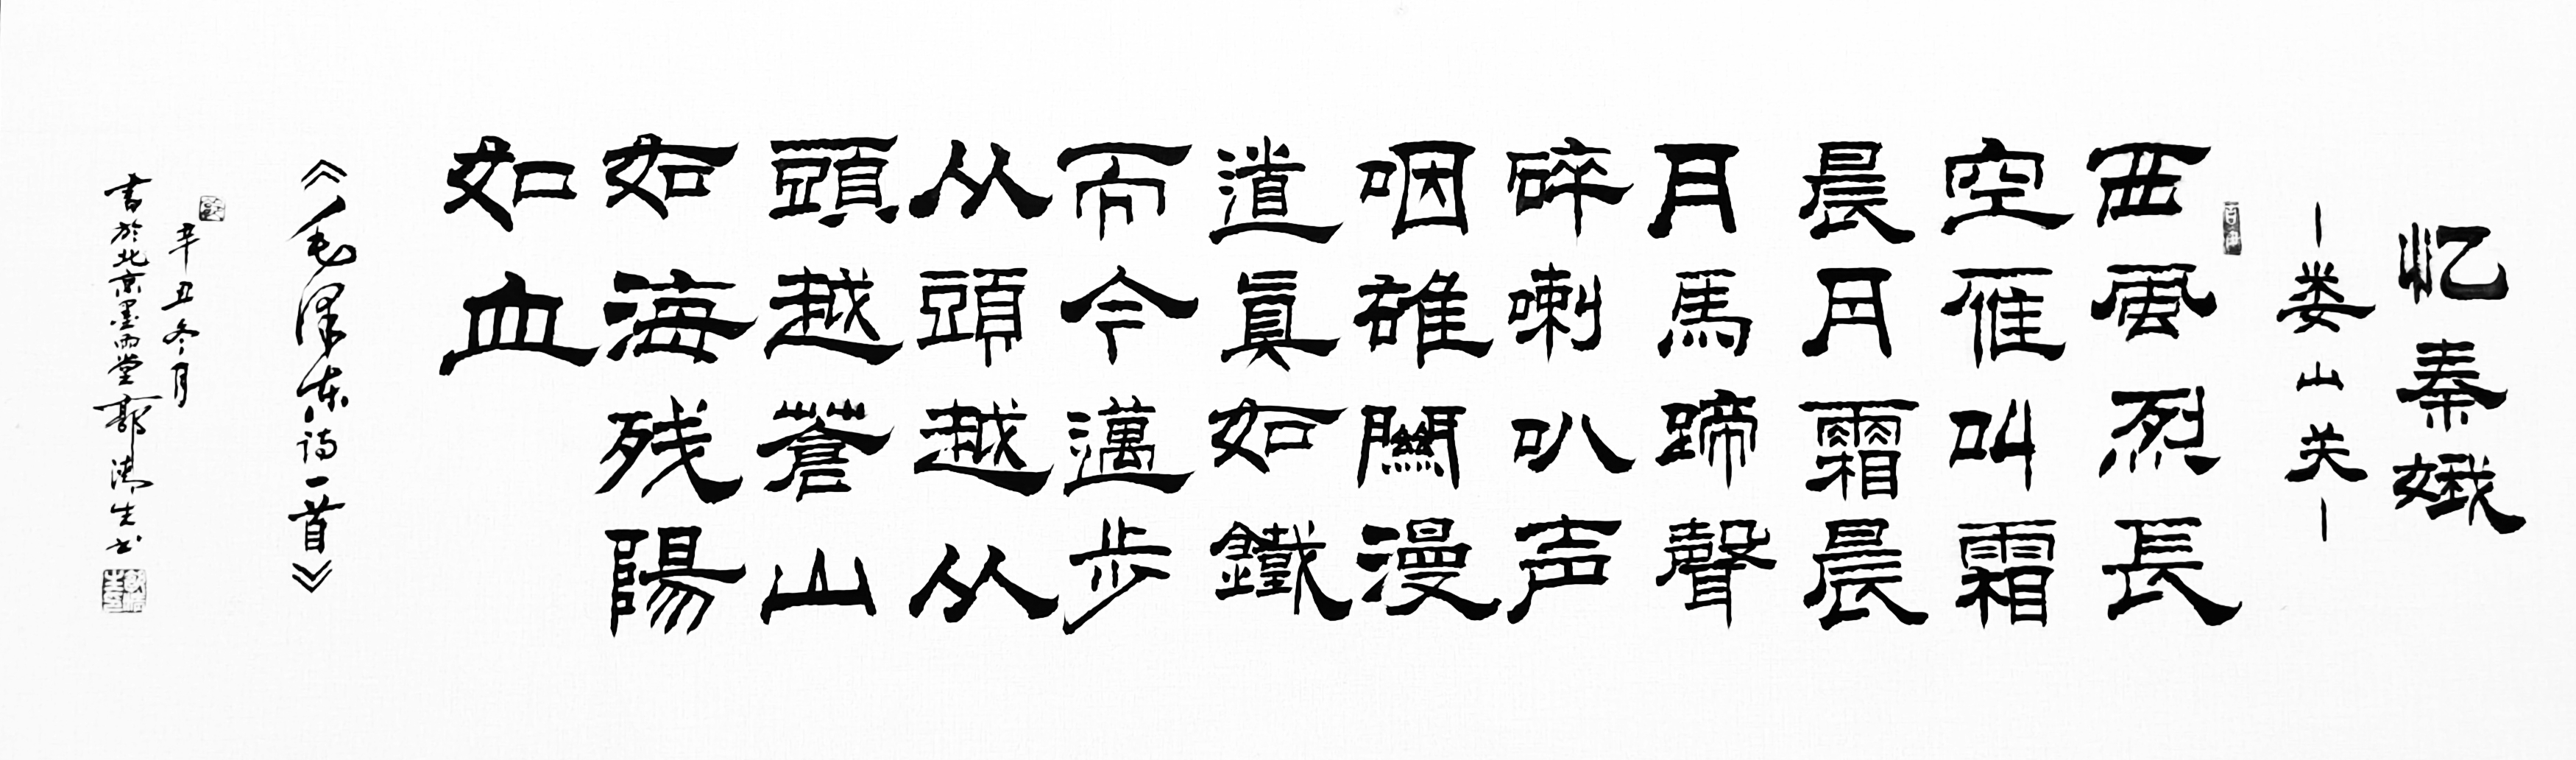 忆秦娥
—娄山关—
西風烈長
空雁叫霜
晨月霜晨
月馬蹄聲
碎喇叭声
咽雄關漫
道眞如鐵
而今邁步
从頭越从
頭越蒼山
如海残陽
如血
《毛泽东诗一首》
辛丑冬月
書於北京墨雨堂 生书